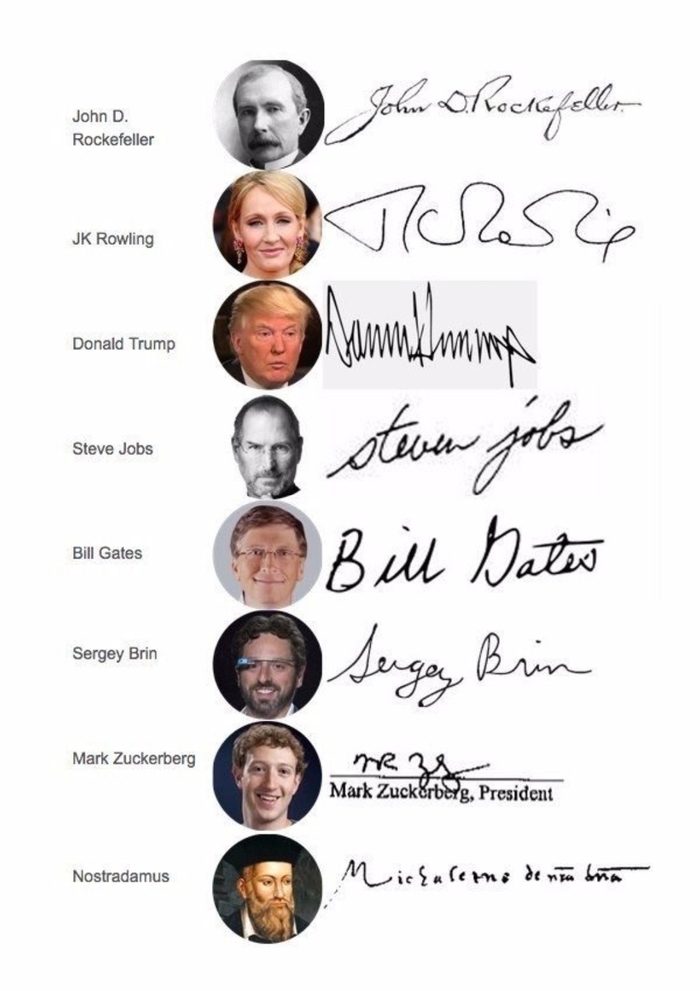 John D.
Rockefeller
John D. Rockefeller
JK Rowling
Donald Trump
steven jobs
Steve Jobs
Bill Gates
Bill Gates
Sergey Brin
Sergey Brin
Mark Zuckerberg
Mark Zuckerberg, President
Nostradamus